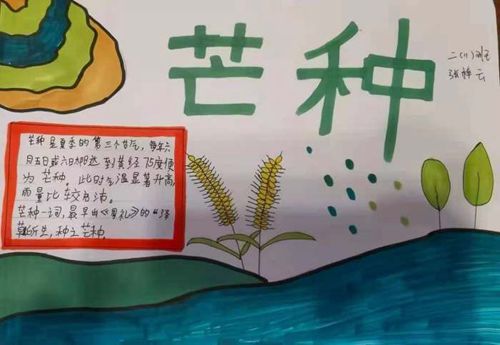 芒种
二(11)班
张梓云
芒种是夏季的第三个节气，每年六
月五日或六日即达到黄经75度便
为芒种。此时气温显著升高，
雨量比较充沛。
芒种一词，最早出《周礼》的“泽
草所生，种之芒种